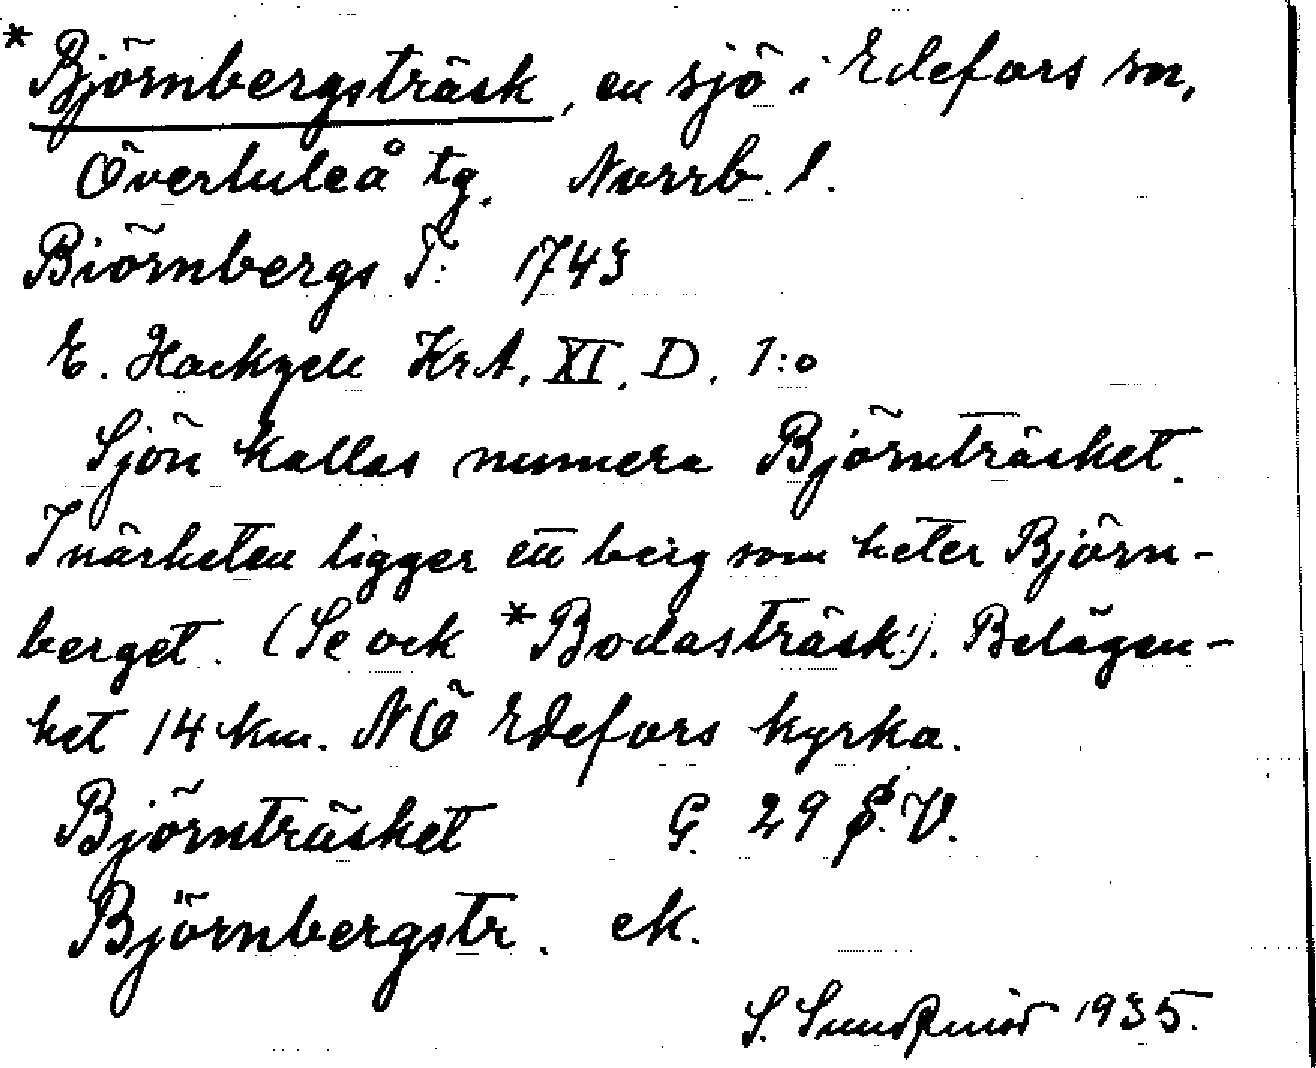 *Björnbergsträsk, en sjö i Edefors sn,
Överluleå tg. Norrb. l.
Biörnbergs T: 1743
E. Hackzell KrA. XI. D. 1:o
Sjön kallas numera Björnträsket.
I närheten ligger ett berg som heter Björn-
berget. (Se ock *Bodasträsk!). Belägen-
het 14 km. NÖ Edefors kyrka.
Björnträsket G. 29 S.V.
Björnbergstr. ek.
S. Sundqvist 1935.